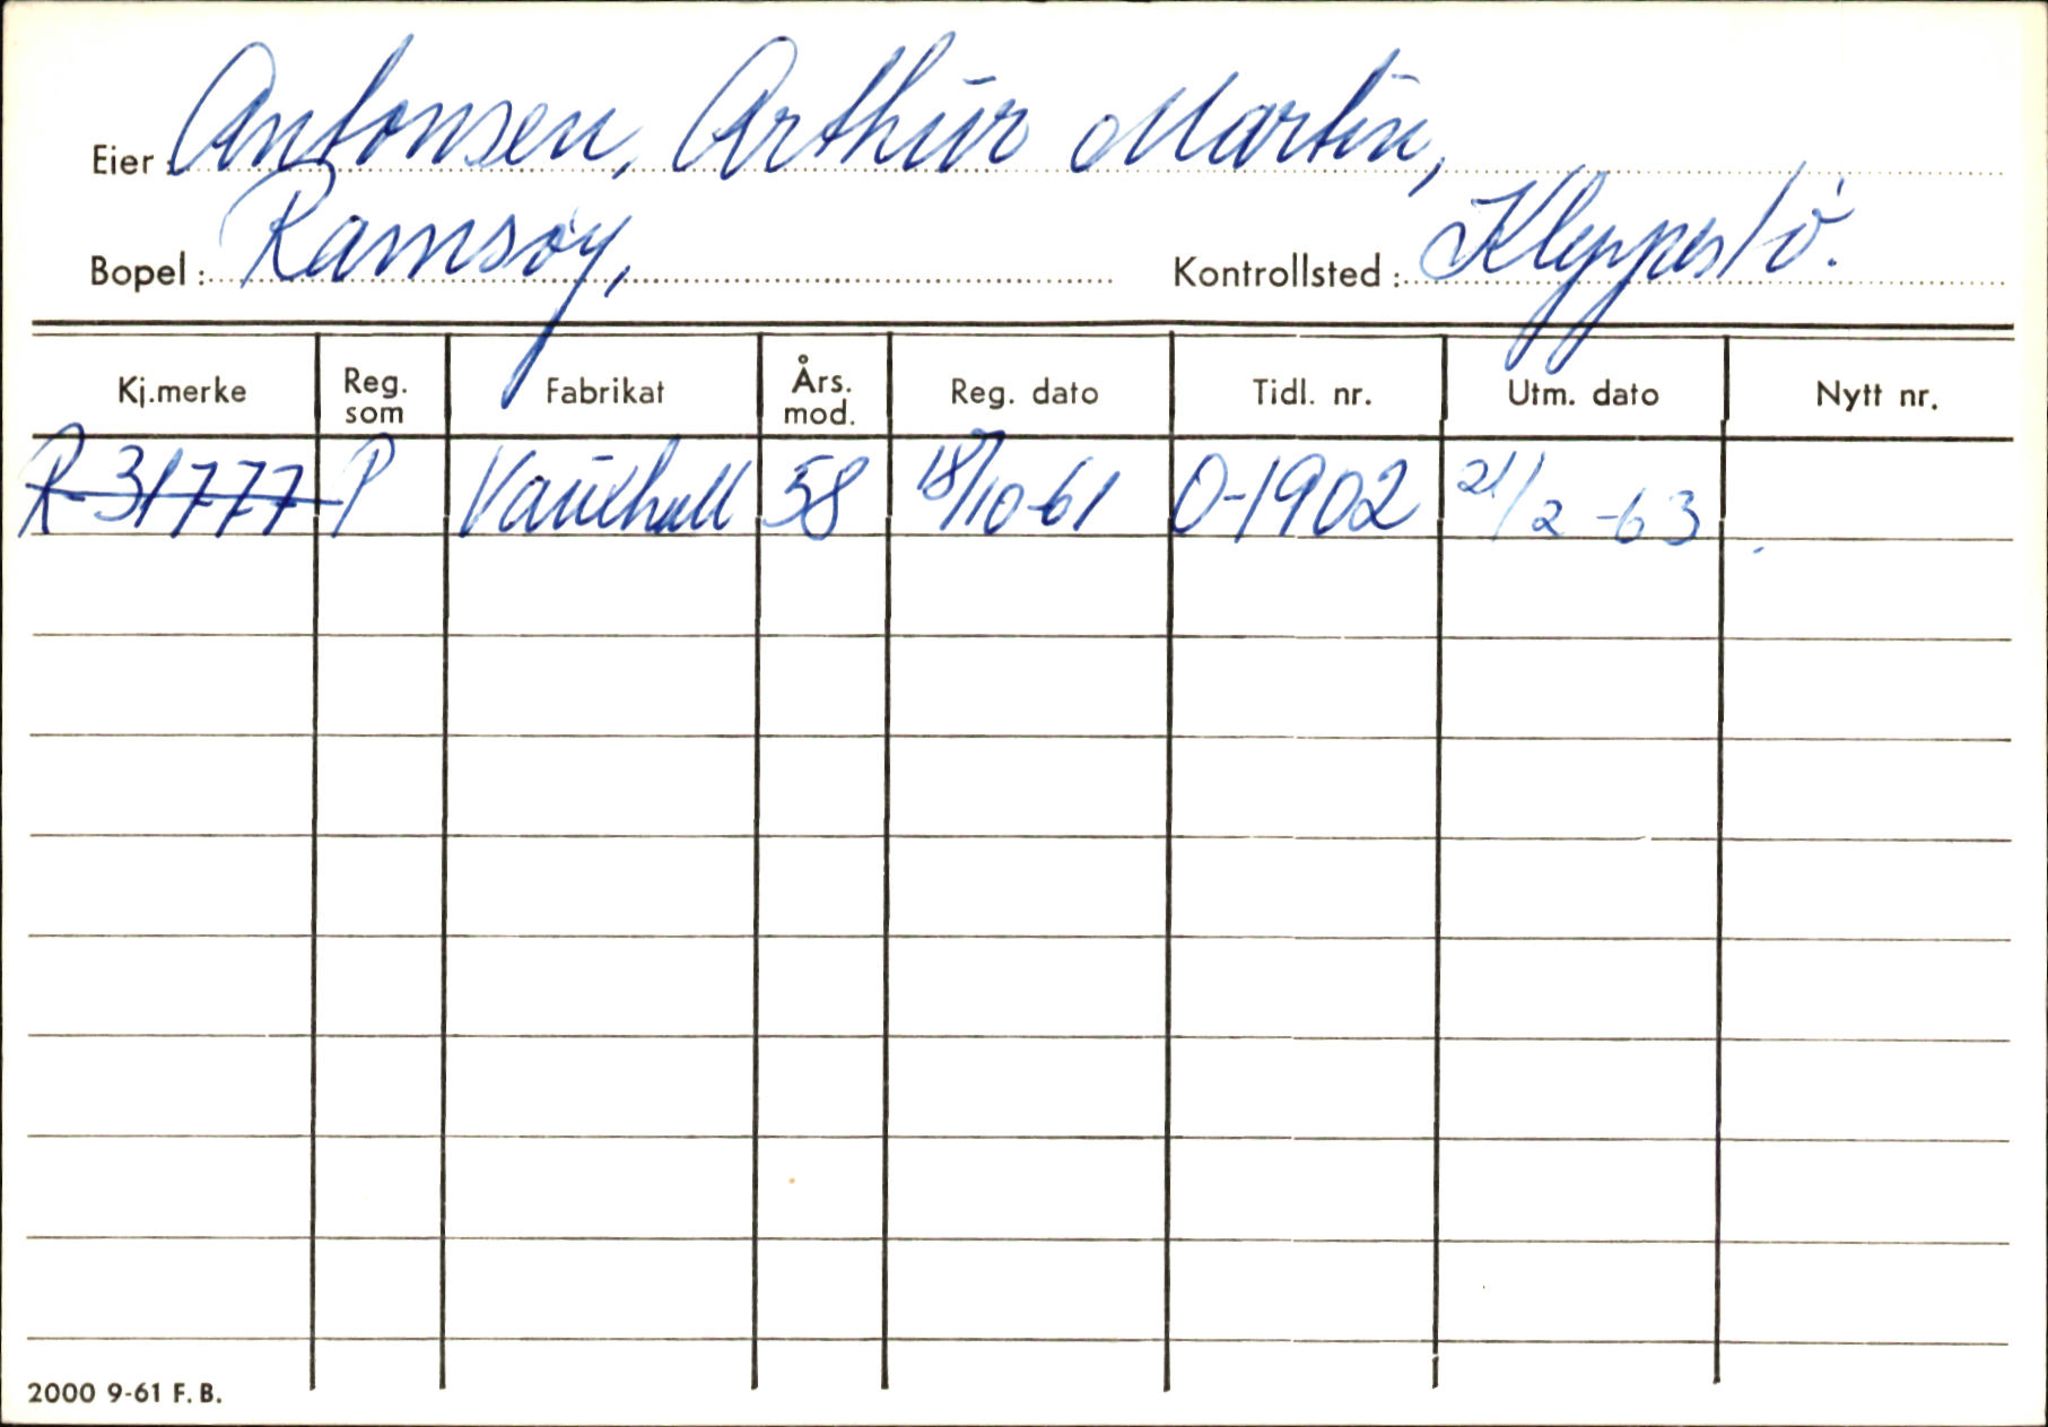 Eier: Antonsen, Arthur Martin,
Bopel: Ramsøy, Kontrollsted: Kleppestø.
Kj.merke Reg. som Fabrikat Års. mod. Reg. dato Tidl. nr. Utm. dato Nytt nr.
R-31777 P Vauxhall 58 18/10-61 O-1902 21/2-63
2000 9-61 F.B.